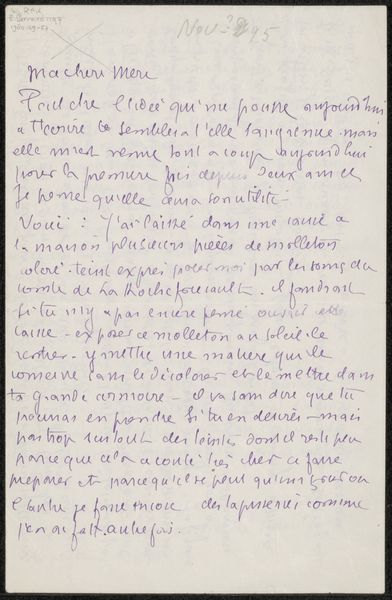 Nov. 95
Ma chere Mere
l'idée qui me pousse aujourd'hui
a t'ecrire te semblera t'elle mais
elle m'est venue tout a coup aujourd'hui
pour la premiere fois depuis deux ans et
je pense qu'elle aura son utilité -
Voici : J'ai laissé dans une caisse a
la maison plusieurs pieces de molleton
coloré - teint exprès pour moi par les soins du
comte de La Rochefoucault. il faudrait
si tu n'y a pas encore pensé ouvrir cette
caisse - exposer ce molleton au soleil le
- y mettre une matiere qui le
conserve sans le décolorer et le mettre dans
ta grande armoire - il va sans dire que tu
pourras en prendre si tu en desires - mais
pas trop surtout des teintes dont il reste peu
parce que cela a couté très cher a faire
preparer et parce qu'il se peut qu'un jour ou
l'autre je fasse encore des tapisseries comme
j'en ai fait autrefois.